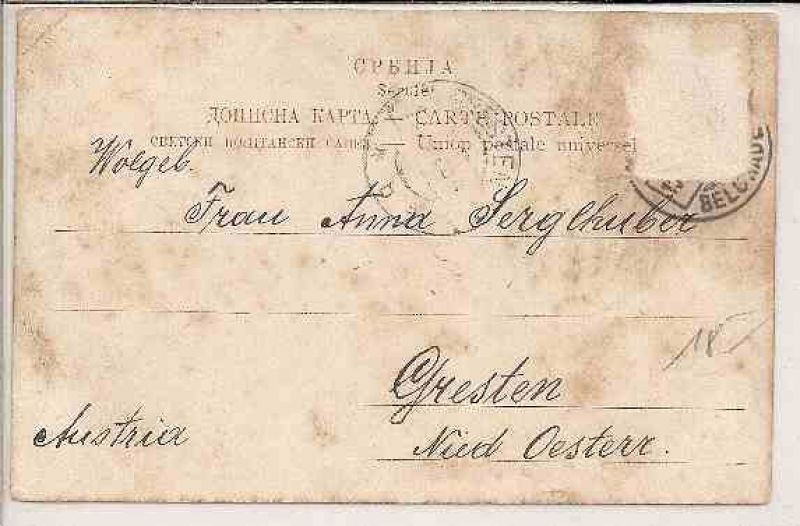 СРБИЈА
Serbie
ДОПИСНА КАРТА — CARTE POSTALE
СВЕТСКИ ПОШТАНСКИ САВЕЗ — Union postale universel
Wolgeb.
Frau Anna Serglhuber
Gresten
Austria
Nied Oesterr.
18-
BELGRADE